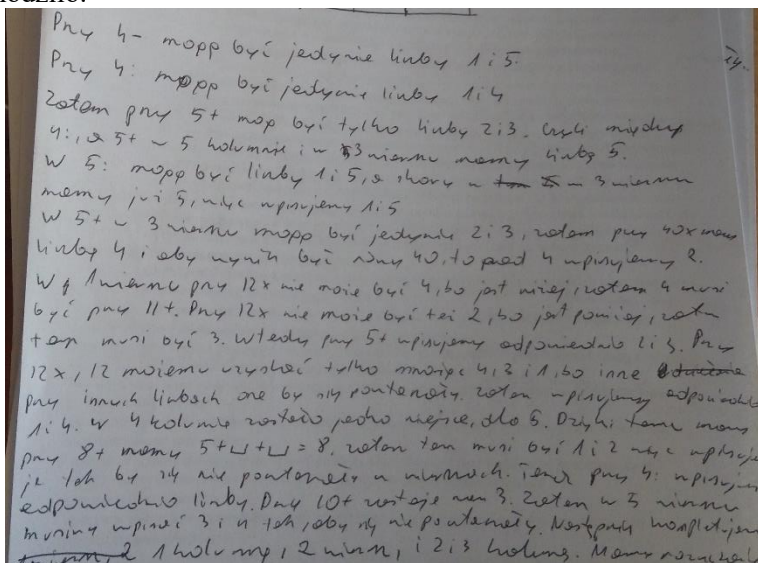 Przy 4- mogą być jedynie liczby 1 i 5.
Przy 4: mogą być jedynie liczby 1 i 4
Zatem przy 5+ mogą być tylko liczby 2 i 3. Czyli między
4:, a 5+ w 5 kolumnie i w 3 wierszu mamy liczbę 5.
W 5: mogą być liczby 1 i 5, a skoro w 3 wierszu
mamy już 5, więc wpisujemy 1 i 5
W 5+ w 3 wierszu mogą być jedynie 2 i 3, zatem przy 40x mamy
liczbę 4 i aby wynik był równy 40, to pod 4 wpisujemy 2.
W 1 wierszu przy 12x nie może być 4, bo jest niżej, zatem 4 musi
być przy 11+. Przy 12x nie może być też 2, bo jest poniżej, zatem
tam musi być 3. Wtedy przy 5+ wpisujemy odpowiednio 2 i 3. Przy
12x, 12 możemy uzyskać tylko mnożąc 4, 3 i 1, bo inne
przy innych liczbach one by się powtarzały. Zatem wpisujemy odpowiednio
1 i 4. W 4 kolumnie zostało jedno miejsce, dla 5. Dzięki temu mamy
przy 8+ mamy 5+␣+␣=8. zatem tam musi być 1 i 2 więc wpisuję
je tak by się nie powtarzały w wierszach. Teraz przy 4: wpisujemy
odpowiednio liczby. Przy 10+ zostaje nam 3. Zatem w 5 wierszu
musimy wpisać 3 i 4 tak, aby się nie powtarzały. Następnie kompletujemy
1 kolumnę, 2 wiersz, i 2 i 3 kolumnę. Mamy